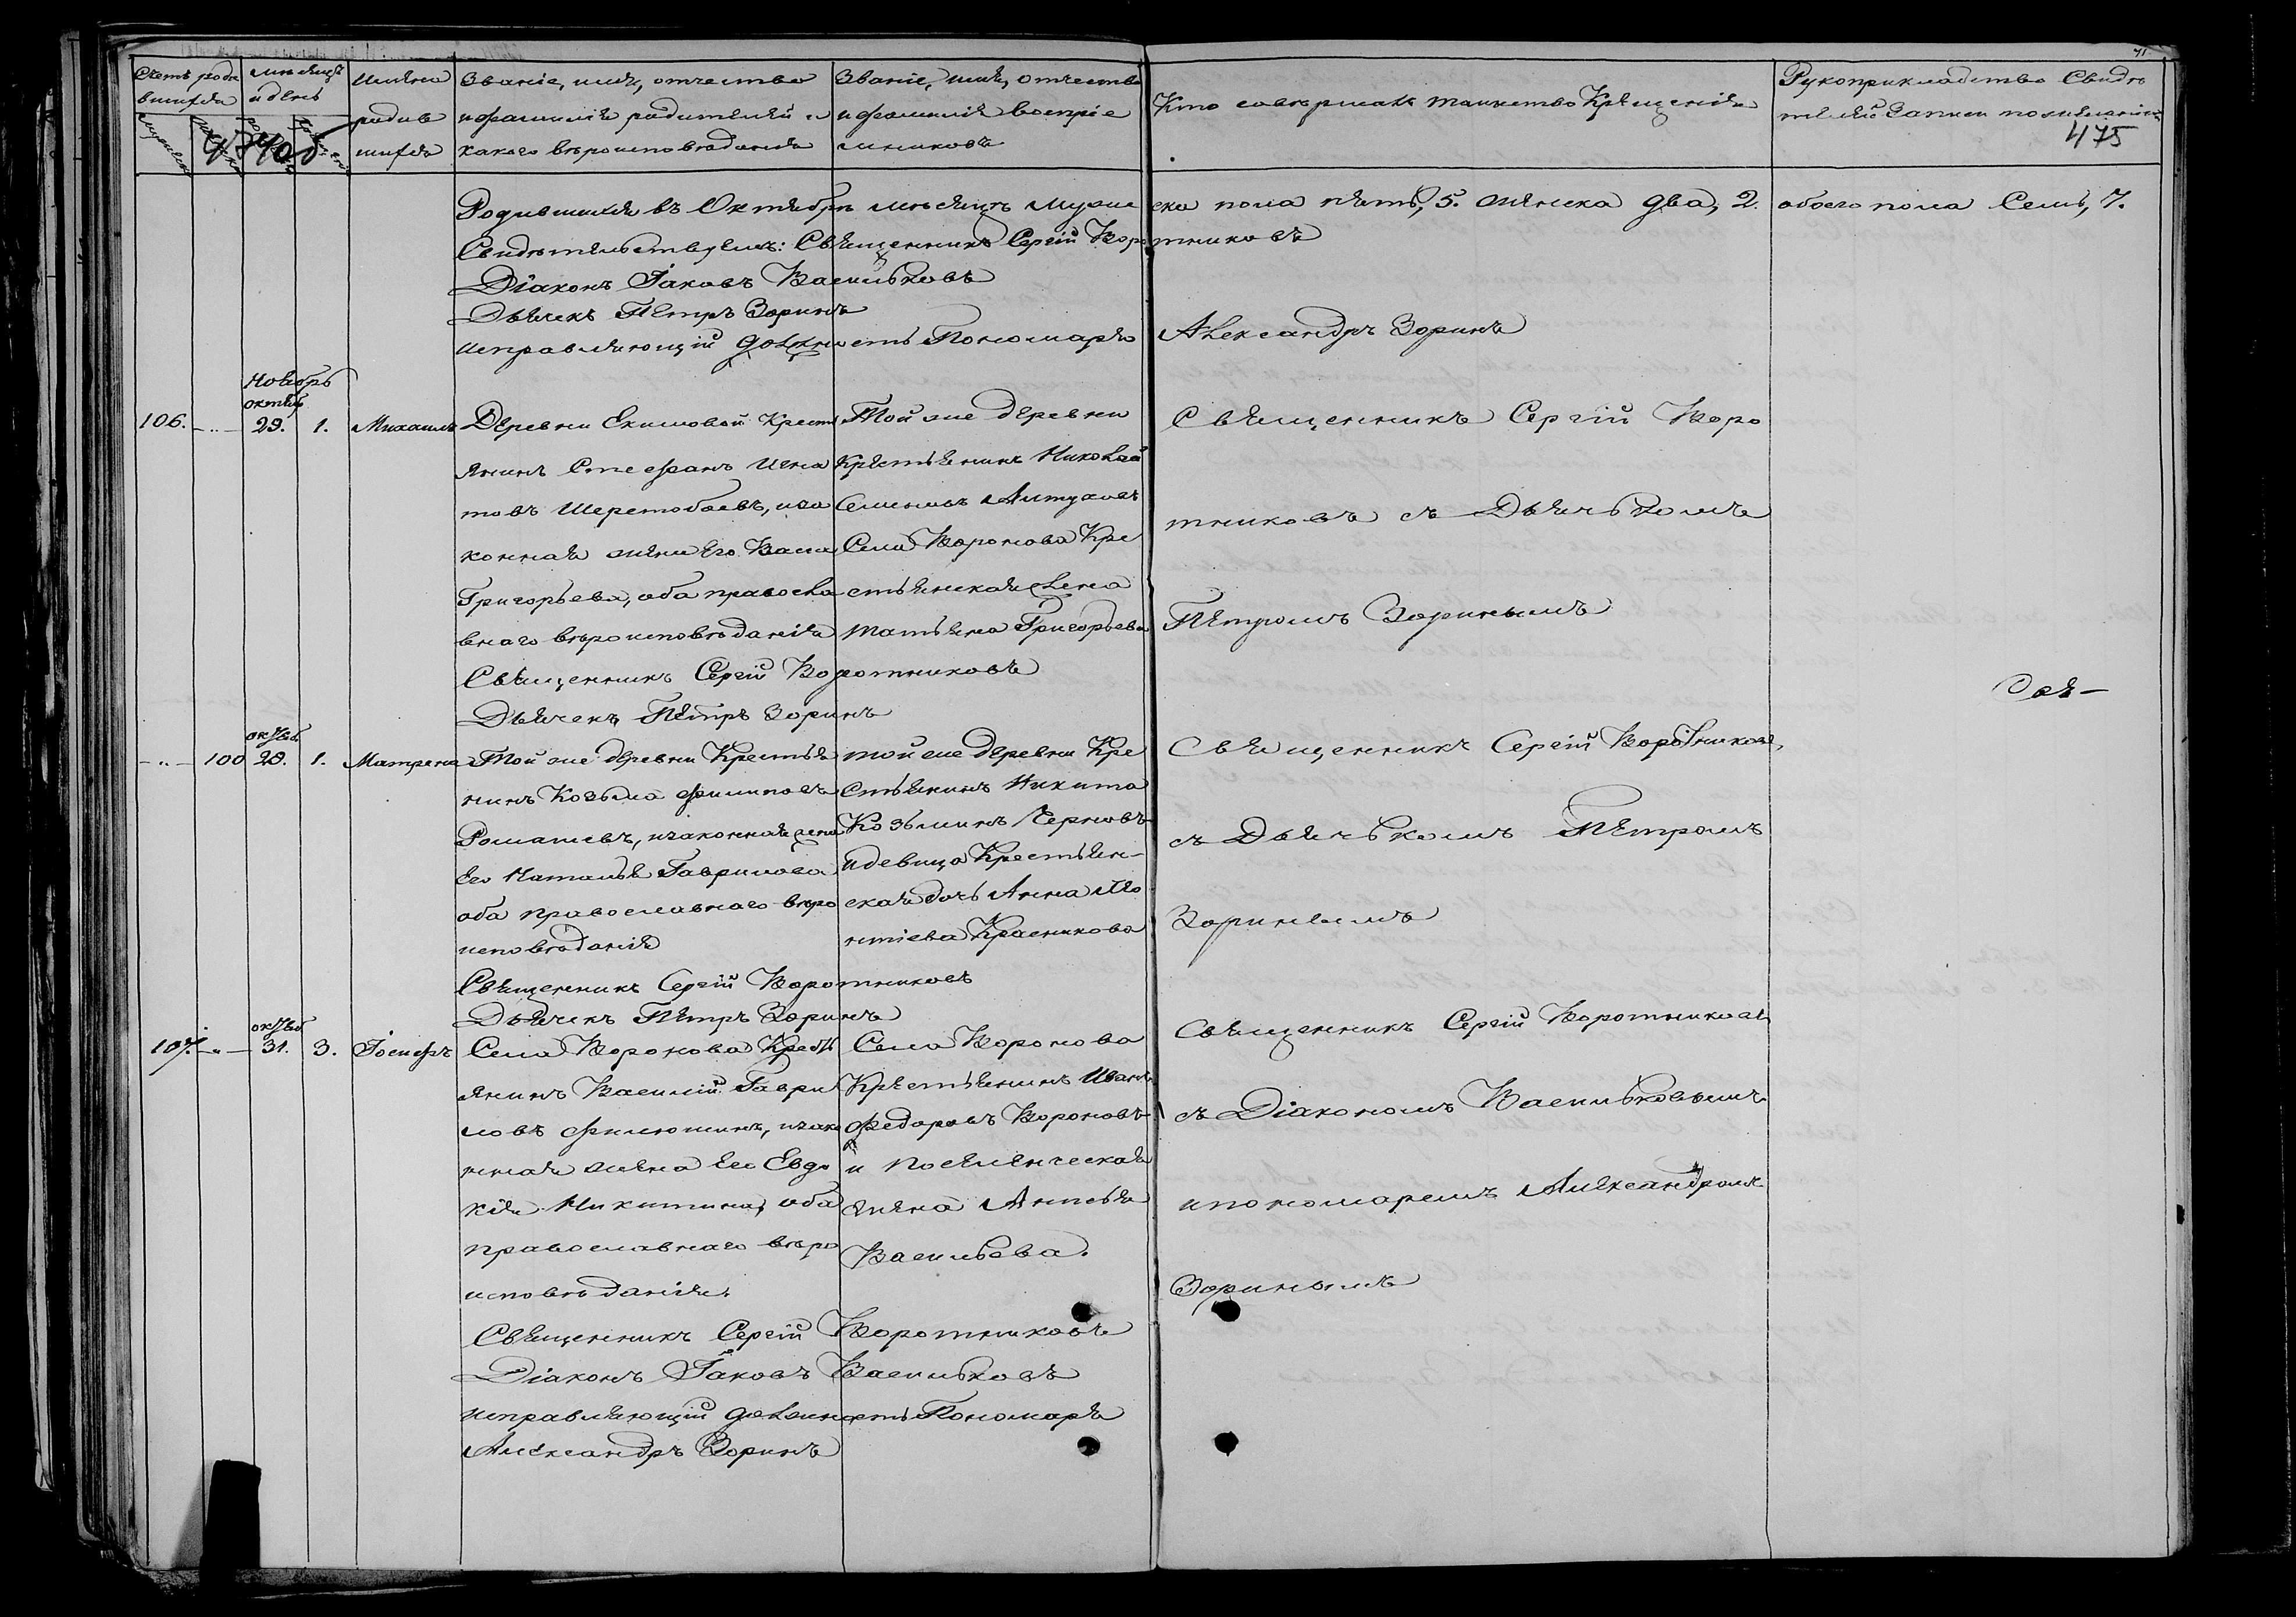 71
Счетъ родив
шихся
месяцъ
и день
имена
родив
шихся
Званіе, имя, отчество
и фамилія родителей и
какого вѣроисповѣданія
Званіе, имя, отчество
и фамилія воспріе
мниковъ
Кто совершалъ таинство Крещенія
Рукоприкладство Свидѣ
телей записи по желанію
475
Родившихся въ Октябрѣ месяцѣ мужескa пола пять, 5. женска два, 2. обоего пола Семь, 7.
Свидѣтельствуемъ: Священникъ Сергій Воротниковъ
Діаконъ Іаковъ Васильковъ
Дьячекъ Петръ Зоринъ
исправляющій должность Пономаря Александръ Зоринъ
Ноябрь
октяб
106. -"- 29. 1. Михаилъ
Деревни Екимовой Крест
янинъ Стефанъ Игна
товъ Шеретобоевъ, и за
конная жена его Васса
Григорьева, оба правосла
внаго вѣроисповѣданія
Той же деревни
Крестьянинъ Николай
Семеновъ Алтуховъ
Села Воронова Кре
стьянская жена
Татьяна Григорьева
Священникъ Сергій Воро
тниковъ съ Дьячькомъ
Петромъ Зоринымъ
Священникъ Сергій Воротниковъ
Дьячекъ Петръ Зоринъ
октяб.
-"- 100 28. 1. Матрена
Той же деревни Крестья
нинъ Козьма Филиповъ
Ромашевъ, и законная жена
его Наталья Гаврилова
оба православнаго вѣро
исповѣданія
той же деревни Кре
стьянинъ Никита
Козьминъ Черновъ
и девица Крестьян-
ская дочь Анна Ле
онтіева Красникова
Священникъ Сергій Воротниковъ,
съ Дьячькомъ Петромъ
Зоринымъ
Священникъ Сергій Воротниковъ
Дьячекъ Петръ Зоринъ
октяб.
107. -"- 31. 3. Іосифъ
Села Воронова Крестъ
янинъ Василій Гаври
ловъ Филюшинъ, и зако
нная жена его Евдо
кія Никитина, оба
православнаго вѣро
исповѣданія.
Села Воронова
Крестьянинъ Иванъ
Федоровъ Вороновъ
и поселенческая
жена Анисья
Васильева.
Священникъ Сергій Воротниковъ
съ Діакономъ Васильковымъ
и пономаремъ Александромъ
Зоринымъ
Священникъ Сергій Воротниковъ
Діаконъ Іаковъ Васильковъ
исправляющій должность Пономаря
Александръ Зоринъ